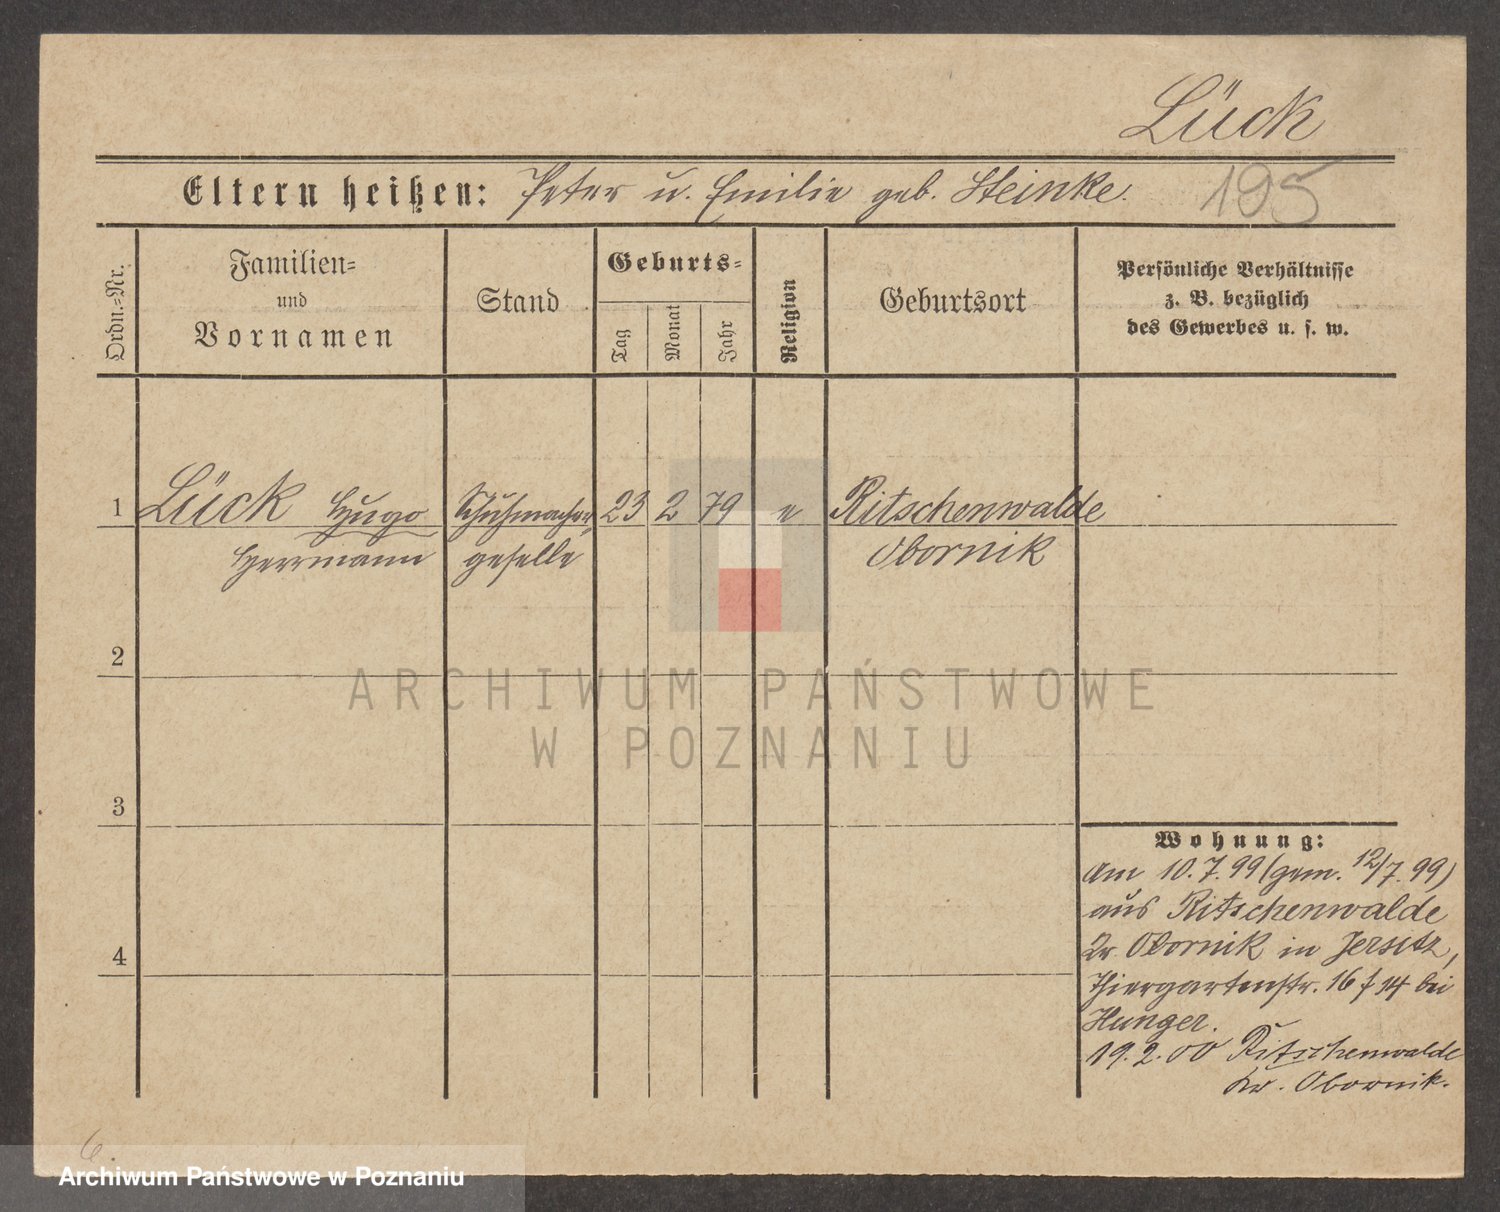 Lück
Eltern heißen: Peter u. Emilie geb. Steinke. 195
Ordn.=Nr.
Familien=
und
Vornamen
Stand
Geburts=
Tag
Monat
Jahr
Religion
Geburtsort
Persönliche Verhältnisse
z. B. bezüglich
des Gewerbes u. s. w.
1 Lück Hugo Schuhmacher= 23 2 79 e Ritschenwalde
Herrmann geselle Obornik
2
ARCHIWUM PAŃSTWOWE
W POZNANIU
3
4
Wohnung:
Am 10.7.99 (gem. 12/7. 99)
aus Ritschenwalde
Kr. Obornik in Jersitz,
Thiergartenstr. 16 14 bei
Hunger.
19.2.00 Ritschenwalde
Kr. Obornik.
6.
Archiwum Państwowe w Poznaniu